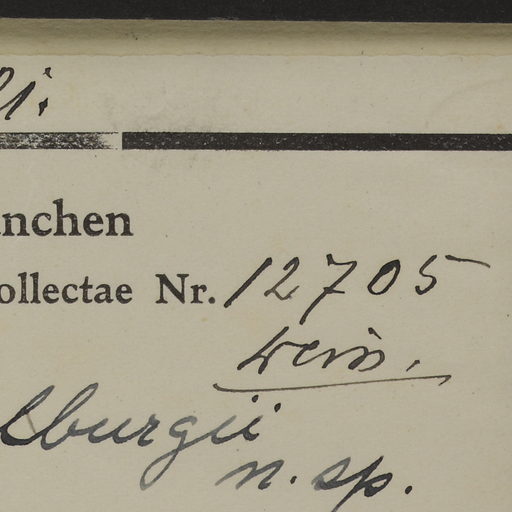 li.
nchen
ollectae Nr. 12705
lburgii
n. sp.